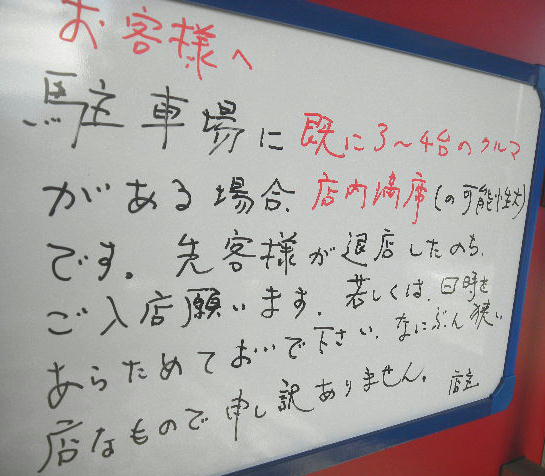 お客様へ
駐車場に既に3〜4台のクルマ
がある場合、店内満席(の可能性大)
です。先客様が退店したのち、
ご入店願います。若しくは、日時を
あらためておいで下さい、なにぶん狭い
店なもので申し訳ありません。店主